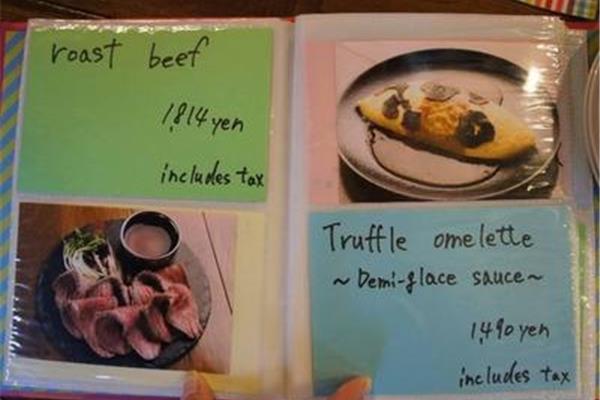 roast beef
1,814 yen
includes tax
Truffle omelette
~ Demi-glace sauce ~
1,490 yen
includes tax